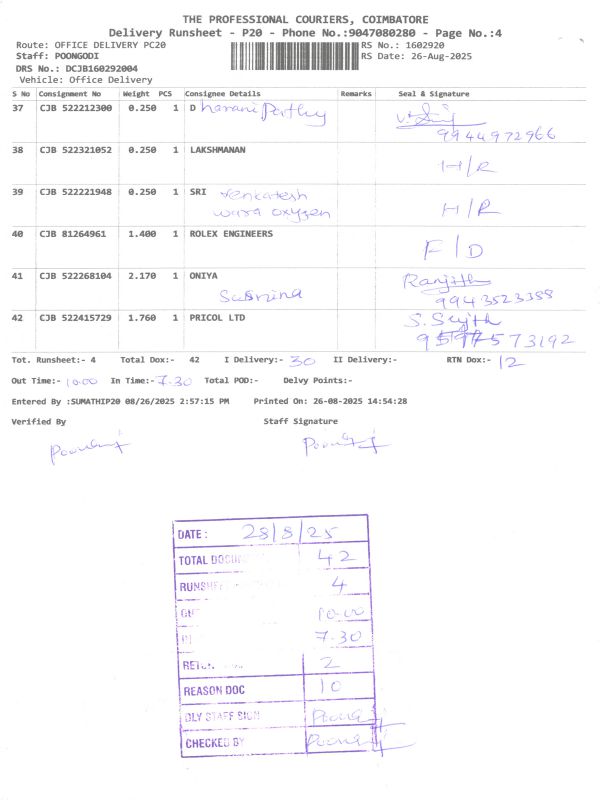 THE PROFESSIONAL COURIERS, COIMBATORE
Delivery Runsheet - P20 - Phone No.:9047080280 - Page No.:4
Route: OFFICE DELIVERY PC20 RS No.: 1602920
Staff: POONGODI RS Date: 26-Aug-2025
DRS No.: DCJB160292004
Vehicle: Office Delivery
S No Consignment No Weight PCS Consignee Details Remarks Seal & Signature
37 CJB 522212300 0.250 1 D haraniParthy
9944972966
38 CJB 522321052 0.250 1 LAKSHMANAN H/R
39 CJB 522221948 0.250 1 SRI Venkatesh
wara oxygen H/R
40 CJB 81264961 1.400 1 ROLEX ENGINEERS F/D
41 CJB 522268104 2.170 1 ONIYA Ranjith
Sabrina 9943523358
42 CJB 522415729 1.760 1 PRICOL LTD S. Sujith
573192
Tot. Runsheet:- 4 Total Dox:- 42 I Delivery:- 30 II Delivery:- RTN Dox:- 12
Out Time:- 10.00 In Time:- 7.30 Total POD:- Delvy Points:-
Entered By :SUMATHIP20 08/26/2025 2:57:15 PM Printed On: 26-08-2025 14:54:28
Verified By Staff Signature
DATE : 28/8/25
TOTAL DOCUM 42
RUNSHE 4
OUT 10.00
7.30
RETU 2
REASON DOC 10
DLY STAFF SIGN
CHECKED BY